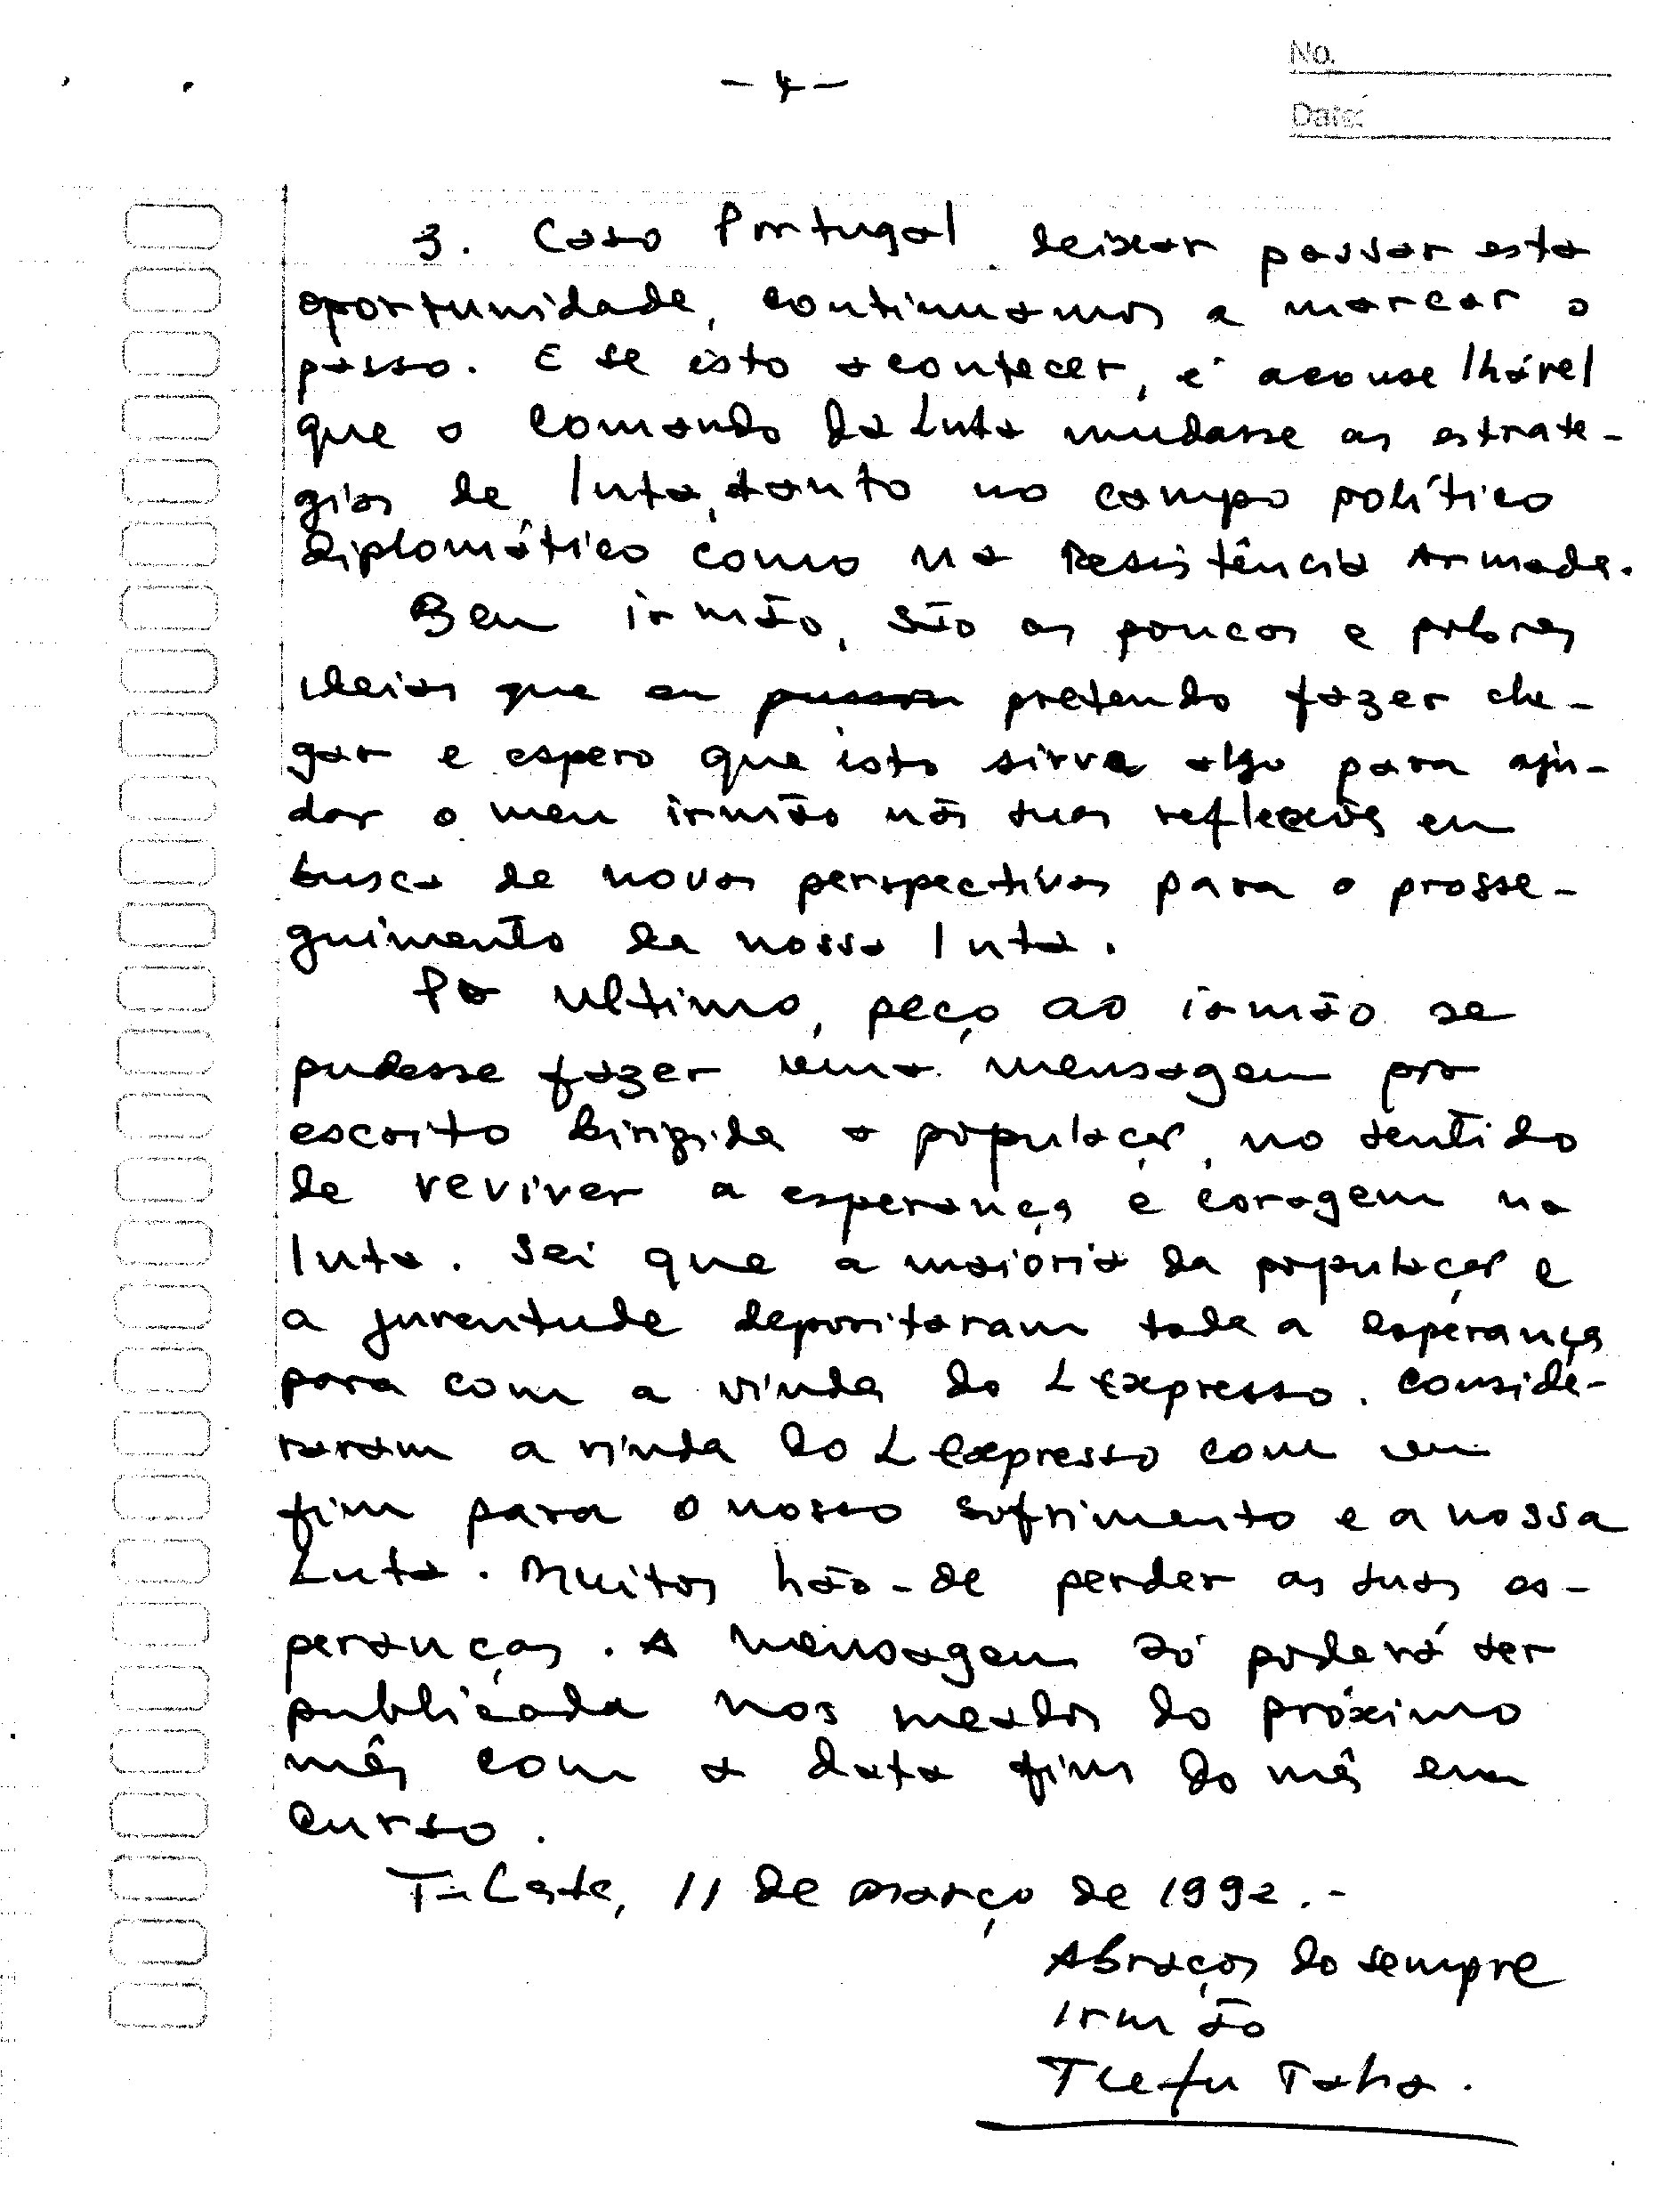 No.
- 4 -
Date:
3. Caso Portugal deixar passar esta
oportunidade, continuamos a marcar o
passo. E se isto acontecer, é aconselhável
que o comando da Luta mudasse as estrate-
gias de luta, tanto no campo político
diplomático como na Resistência Armada.
Bem irmão, são as poucas e pobres
ideias que eu pretendo fazer che-
gar e espero que isto sirva algo para aju-
dar o meu irmão nas suas reflexões em
busca de novas perspectivas para o prosse-
guimento da nossa luta.
Por ultimo, peço ao irmão se
pudesse fazer uma mensagem por
escrito dirigida a população, no sentido
de reviver a esperança e coragem na
luta. Sei que a maioria da população e
a juventude depositaram toda a esperança
para com a vinda do L. Expresso. Conside-
raram a vinda do L. Expresso com um
fim para o nosso sofrimento e a nossa
Luta. Muitos hão-de perder as suas es-
peranças. A mensagem só poderá ser
publicada nos meados do próximo
mês com a data fim do mês em
curso.
T. Leste, 11 de Março de 1992.-
Abraços do sempre
irmão